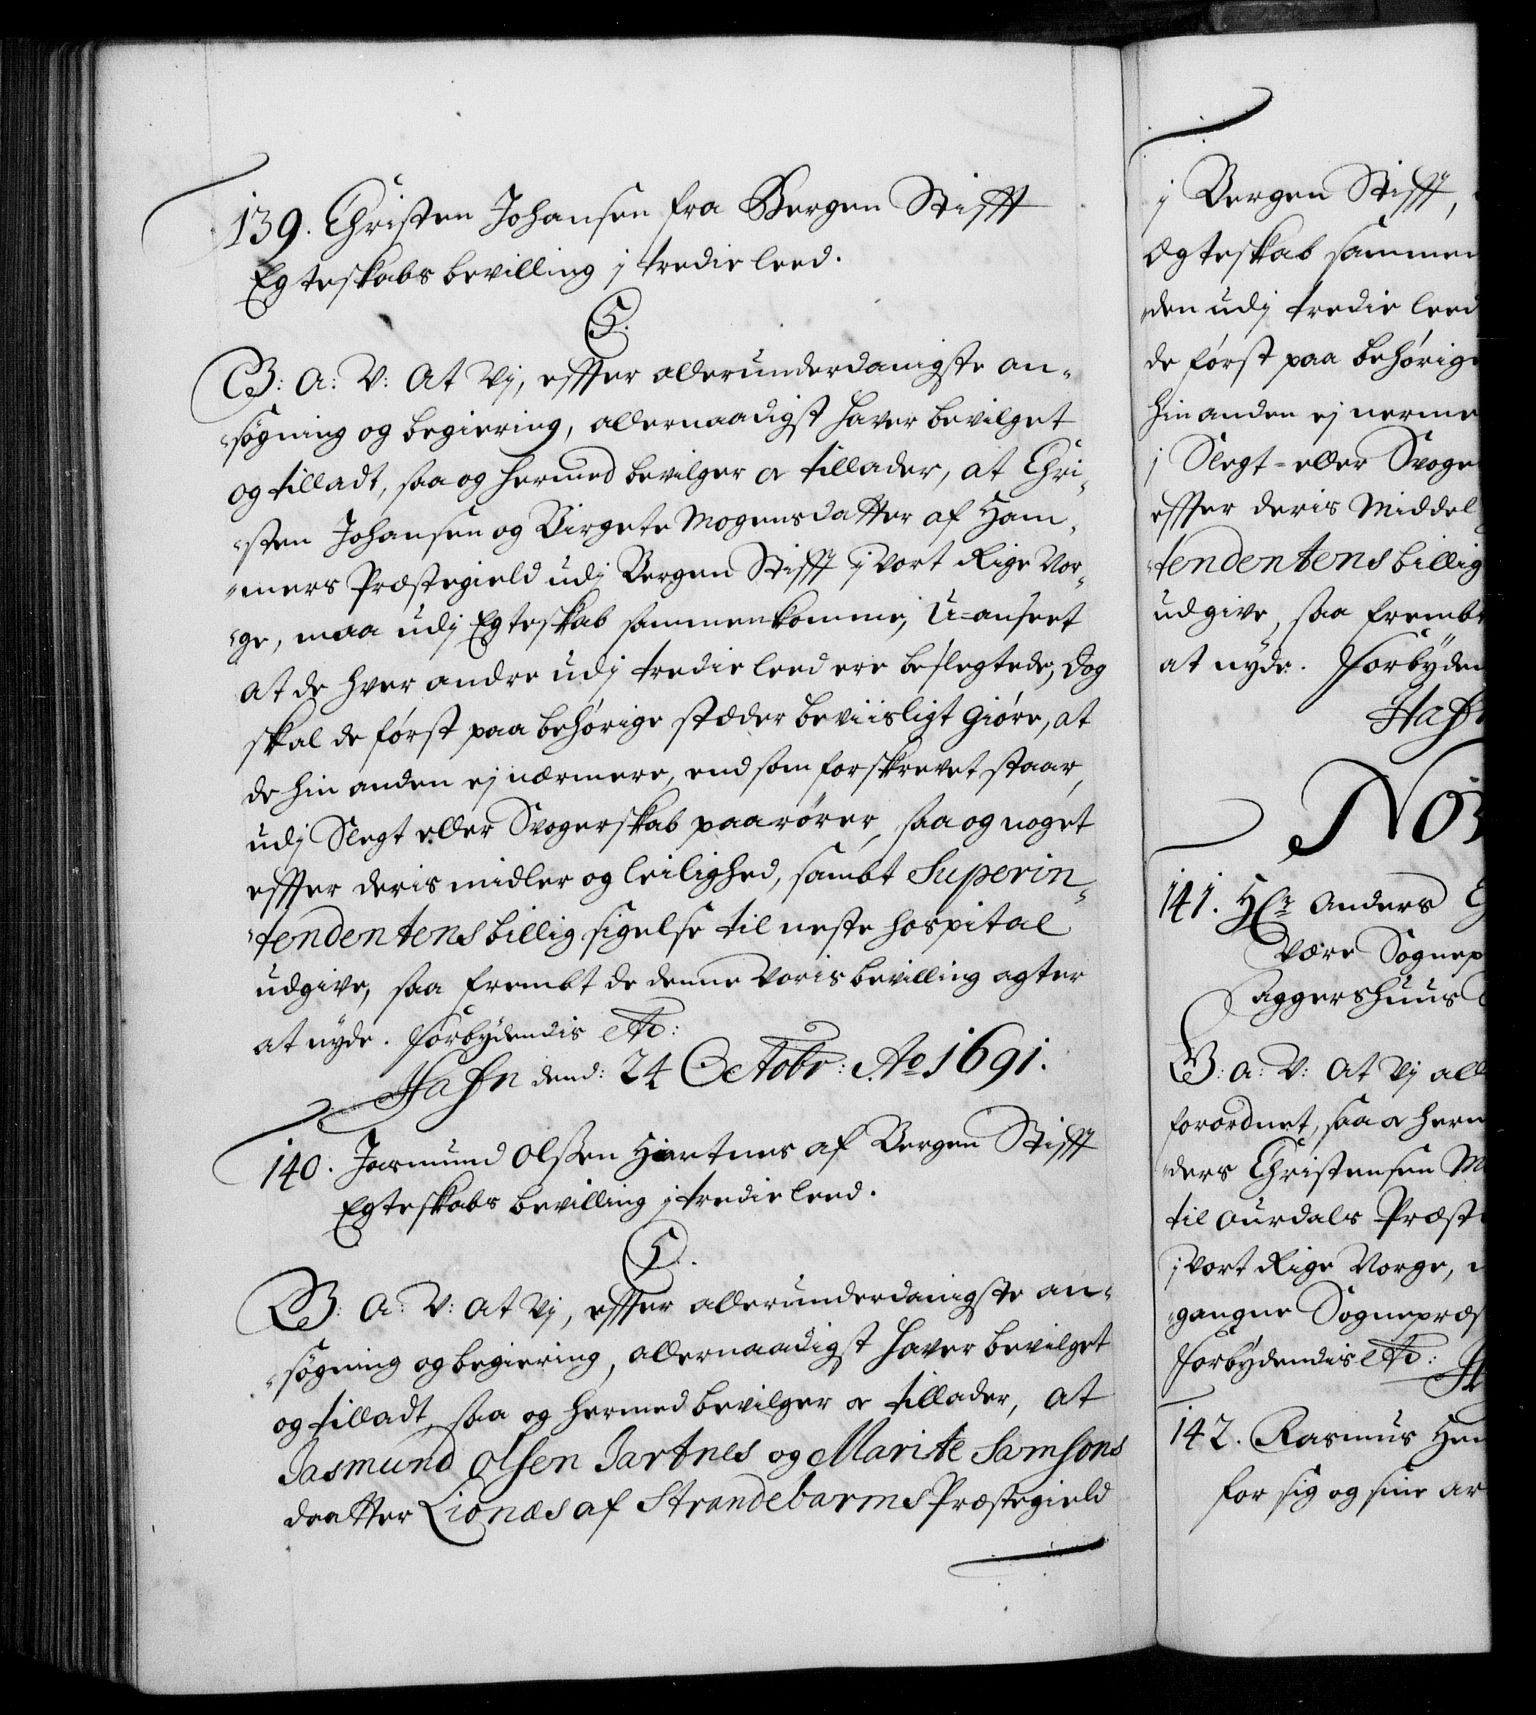 139. Christen Johansen fra Bergen Stifft
Egteskabs bevilling j tredie leed.
C5.
G: A: V: At Vj, effter allerunderdanigste an-
søgning og begiering, allernaadigst hafver bevilget
og tilladt, saa og hermed bevilger og tillader, at Chri-
sten Johansen og Birgete Mogensdatter af Ham-
mers Præstegield udj Bergen Stifft j vort Rige Nor-
ge, maa udj Egteskab sammenkomme, U-anseet
at de hver andre udj tredie leed ere beslegtede, Dog
skal de først paa behørige stæder beviisligt giøre, at
de hin anden ej nærmere, end som forskrevet staar,
udj Slegt eller Svogerskab paarører, saa og noget
effter deris midler og leilighed, sambt Superin-
tendentens billig sigelse til neste hospital
udgive, saa frembt de denne Voris bevilling agter
at nyde. Forbydendis etc:
Hafn dend: 24 Octobr: Ao 1691.
140. Jasmund Olssen Hiartnes af Bergen Stifft
Egteskabs bevilling j tredie leed.
C5.
G: A: V: At Vj, effter allerunderdanigste an-
søgning og begiering, allernaadigst hafver bevilget
og tilladt, saa og hermed bevilger og tillader, at
Jasmund Olsen Jartnes og Marite Samsons
daatter Lionæs af Strandebarms Præstegield
j Bergen Stifft,
Ægteskab sammen
den udj tredie leed
de først paa behørige
hin anden ej nerme
j Slegt- eller Svoge
effter deris Middel
tendentens billig
udgive, saa frembt
at nyde. Forbyden
Hafn
Nov
141. Hr Anders
være Sognep
Aggershuus
G: A: V: At Vj all
forordnet, saa og herm
ders Christensen M
til Ourdals Præst
j vort Rige Norge,
gangne Sognepræs
Forbydendis etc: H
142. Rasmus Han
for sig og sine ar